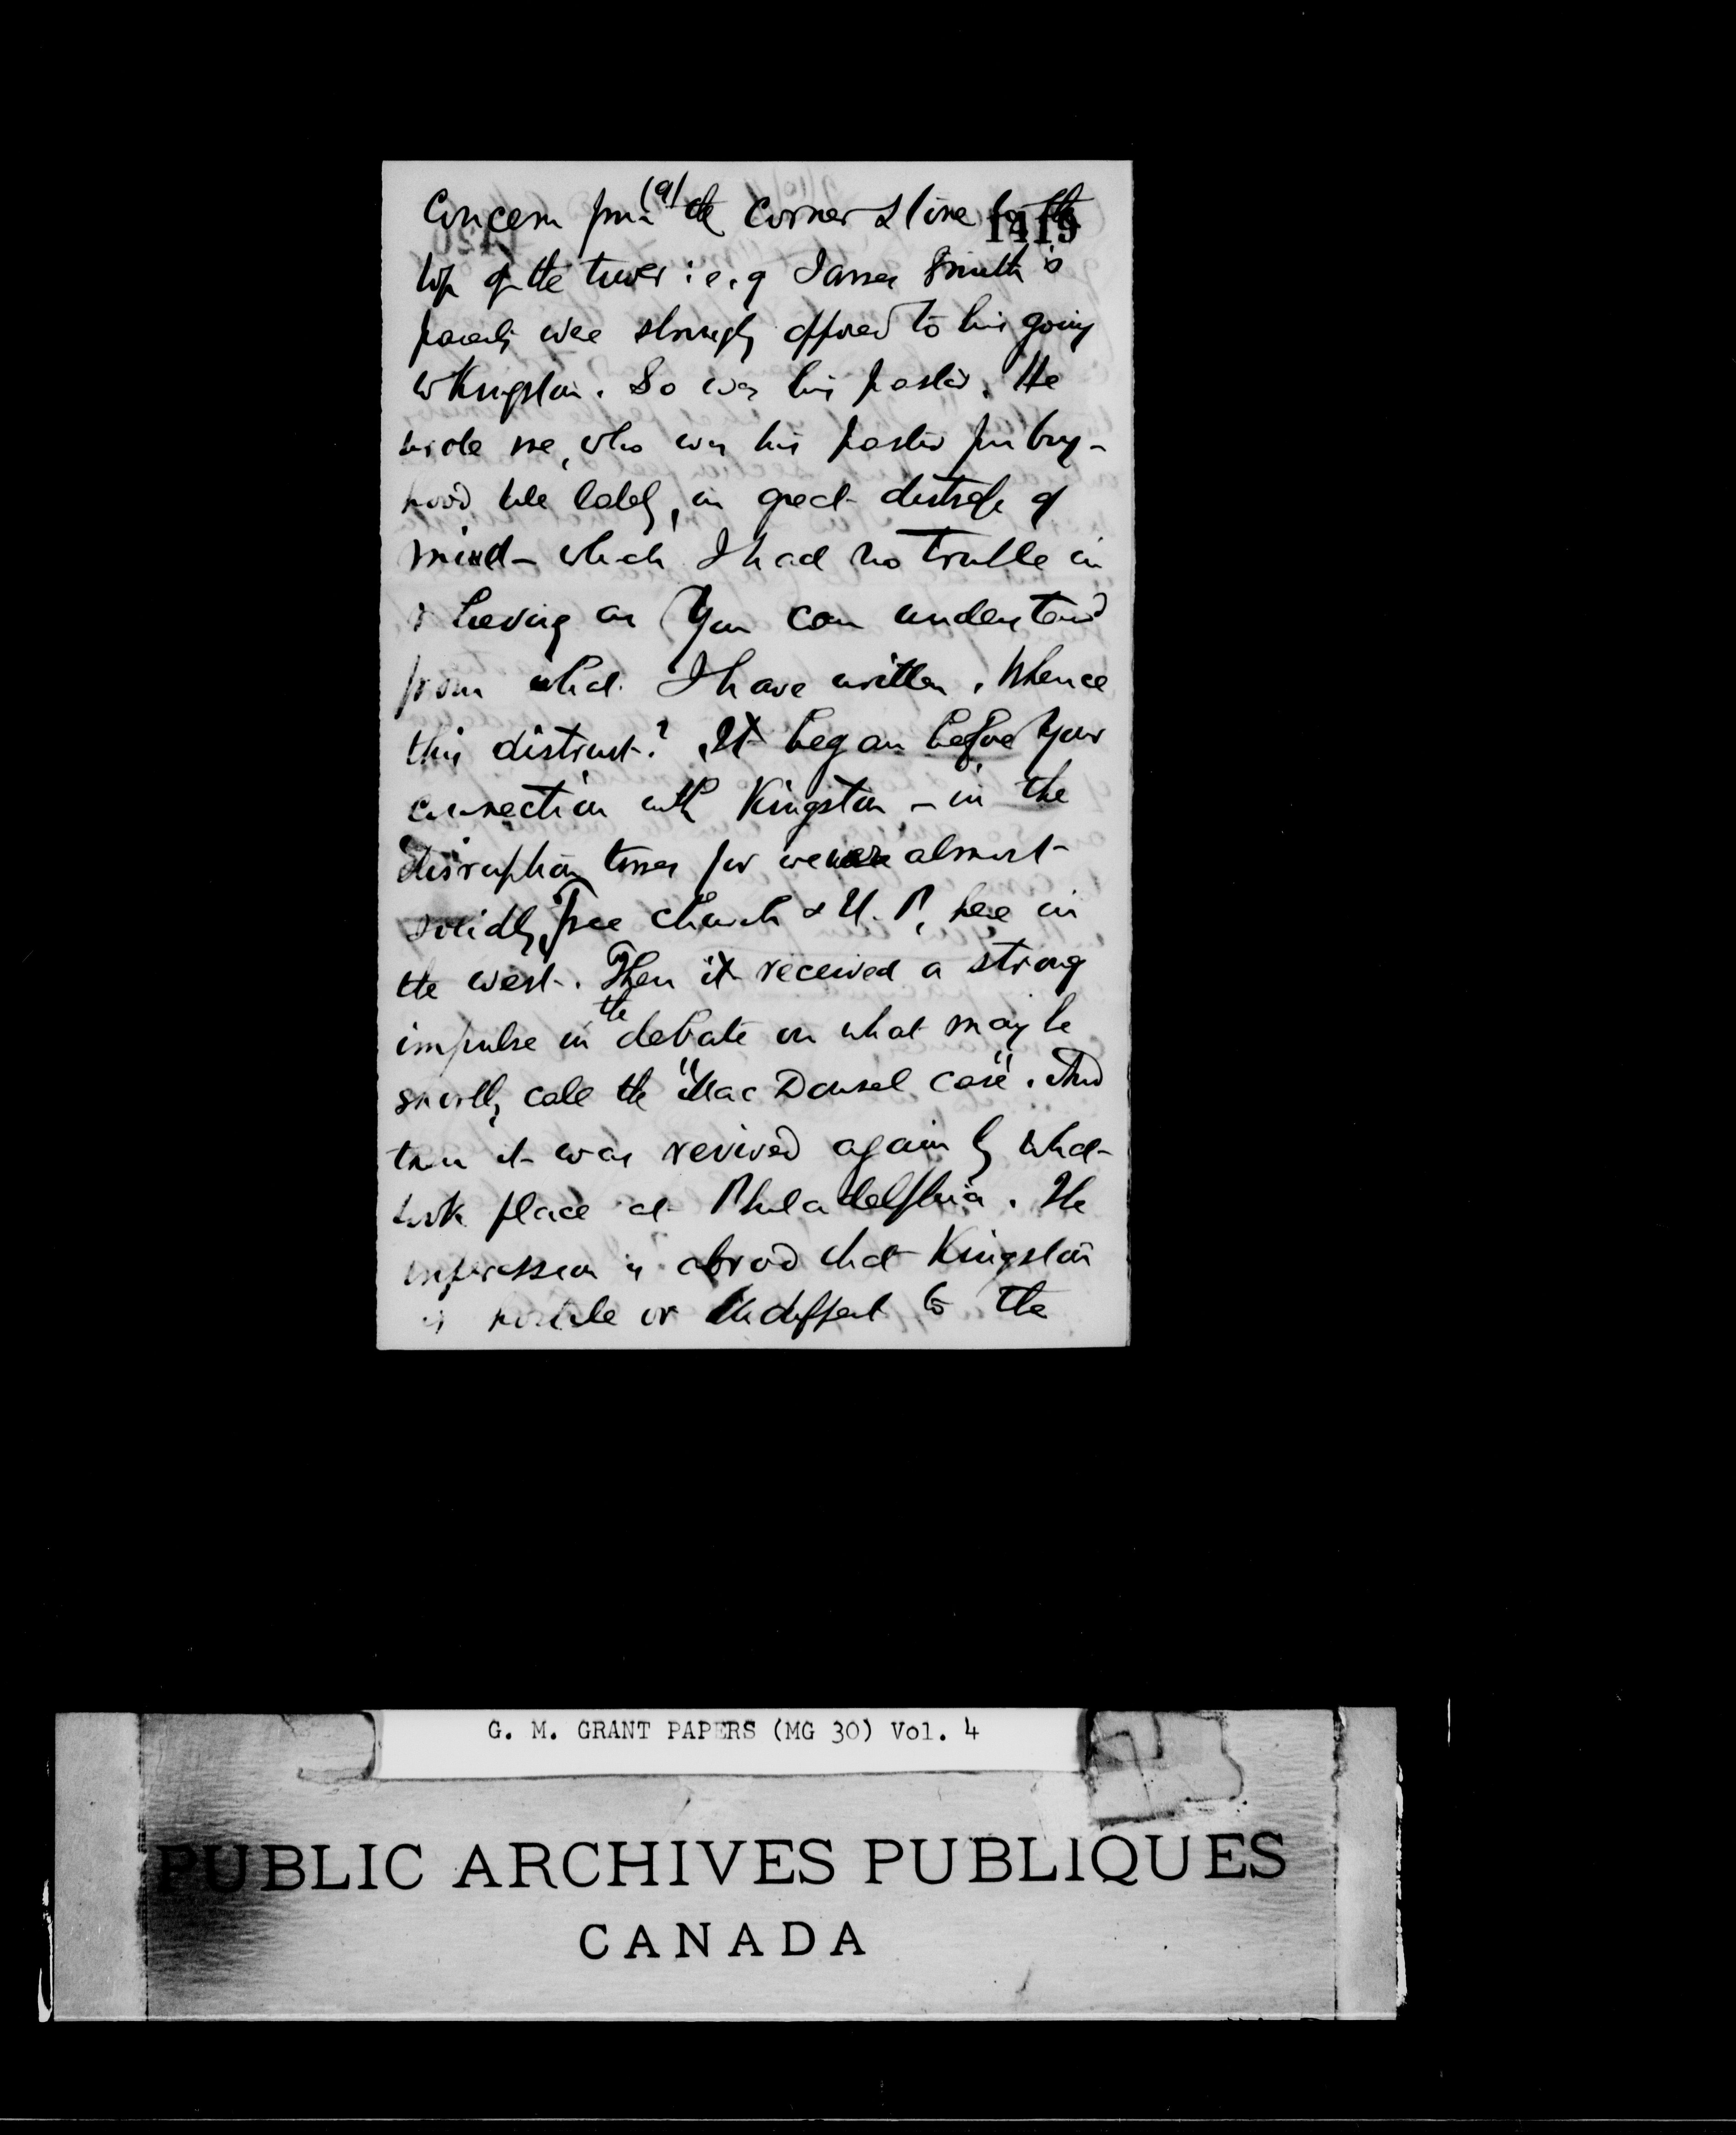 (9)
1419
Concern from the Corner Stone to the
top of the tower: e.g James Smith's
parents were strongly opposed to his going
to Kingston. So was his pastor. He
wrote me, who was his pastor from boy-
hood till lately, in great distress of
mind - which I had no trouble in
relieving as you can understand
from what I have written. Whence
this distrust? It began before your
connection with Kingston - in the
disruption times for we were almost
solidly Free Church & U. P. here in
the west. Then it received a strong
impulse in the debate on what may be
shortly call the "MacDonnel case". And
then it was revived again by what
took place at Philadelphia. The
impression is abroad that Kingston
is hostile or indifferent to the
G. M. GRANT PAPERS (MG 30) Vol. 4
PUBLIC ARCHIVES PUBLIQUES
CANADA